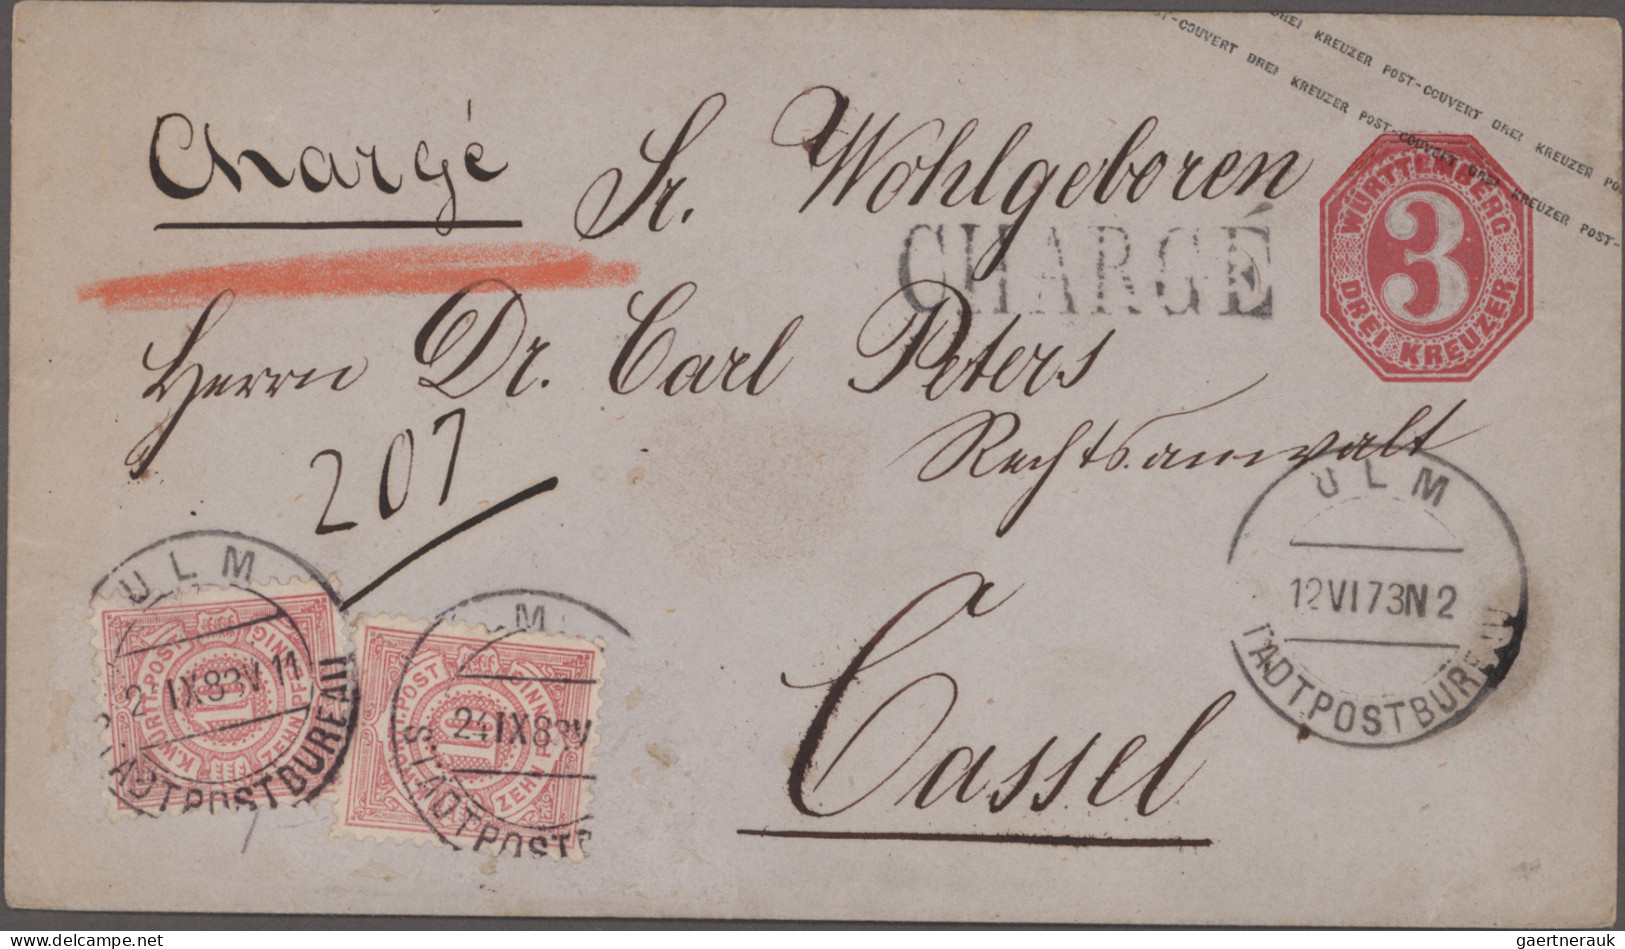 DREI KREUZER POST-COUVERT DREI KREUZER
POST-COUVERT DREI KREUZER POST-COUVERT DREI KREUZER POST-
Chargé
Sr. Wohlgeboren
CHARGÉ
WÜRTTEMBERG
3
DREI KREUZER
Herrn Dr. Carl Peters
Rechtsanwalt
207
Cassel
ULM
12 VI 73 N 2
TADTPOSTBUREAU
ULM
2 IX 83 V 11
TADTPOSTBUREAU
K.WÜRTT.POST
10
ZEHN PFENNIG
M
24 IX 83 V
STADTPOST
WÜRTT.POST
10
ZEHN PFENNIG
gaertnerauk